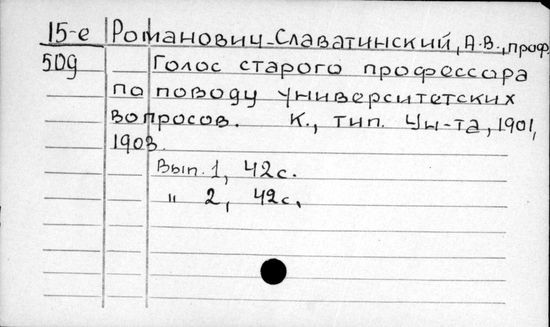 15-е Романович-Славатинский, А.В., проф.
509 Голос старого профессора
по поводу университетских
вопросов. К., тип. Ун-та, 1901,
1903.
Вып. 1, 42 с.
" 2, 42 с.